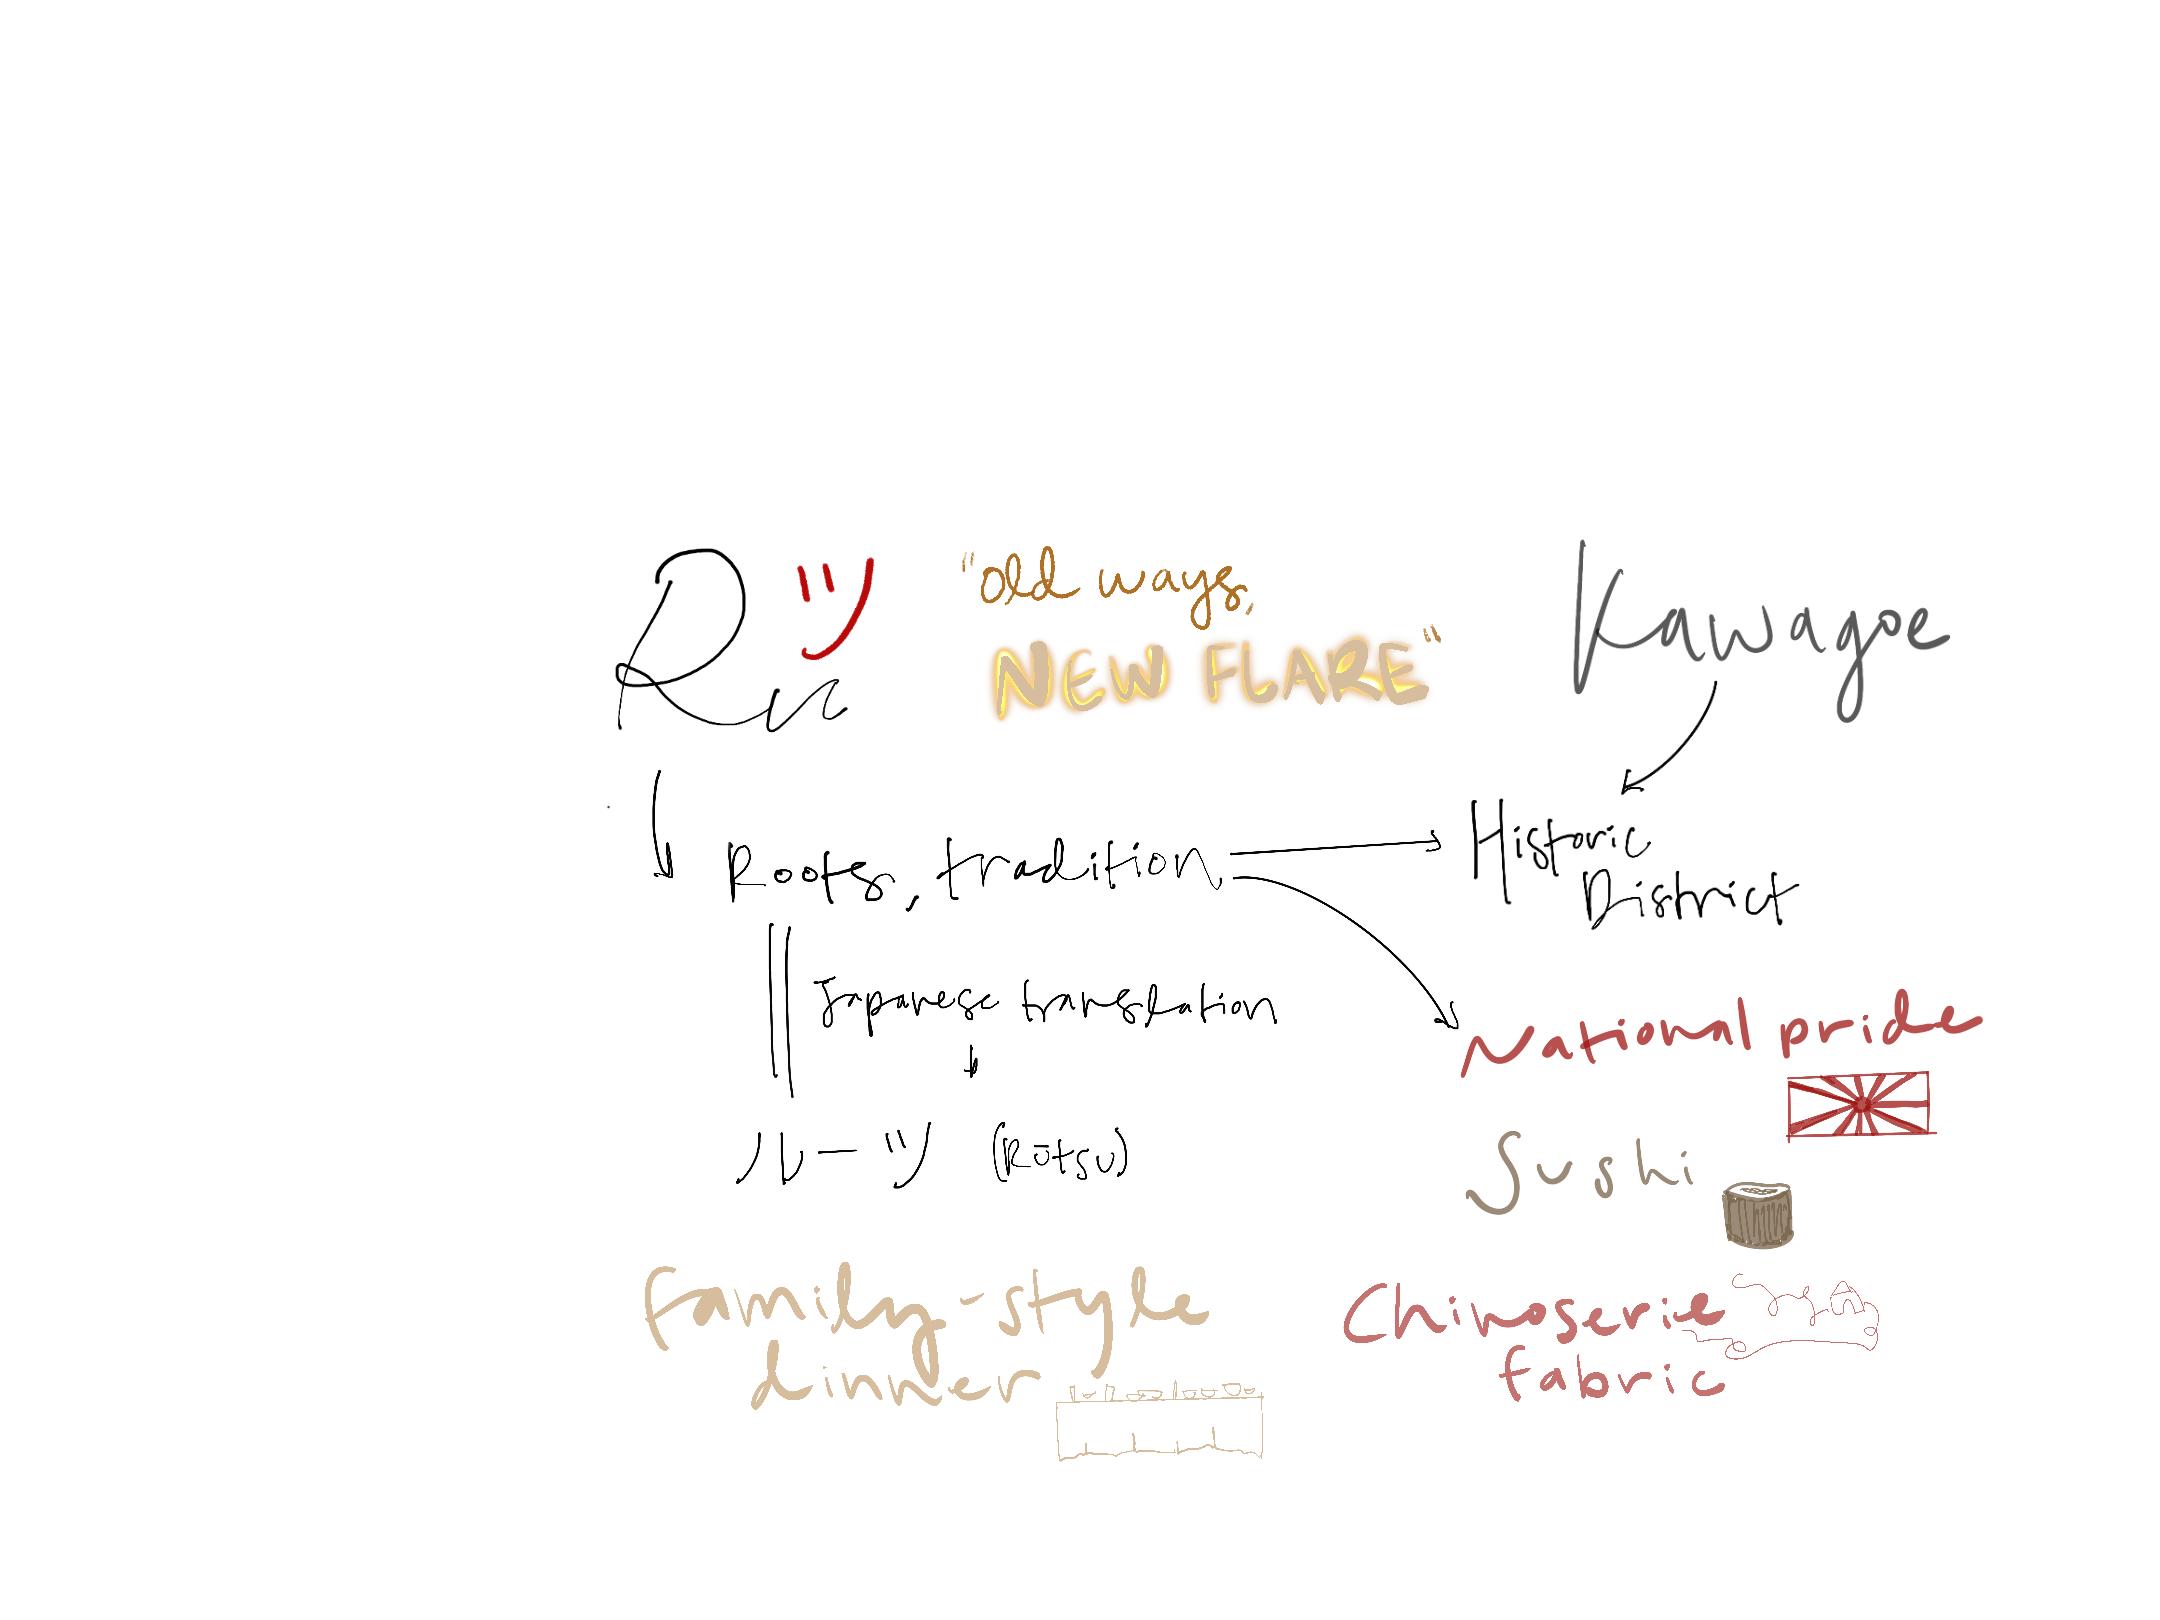 Ru
ツ
"old ways,
NEW FLARE"
Kawagoe
Roots, tradition
Historic
District
Japanese translation
ルーツ (Rūtsu)
National pride
Sushi
Family-style
dinner
Chinoserie
fabric